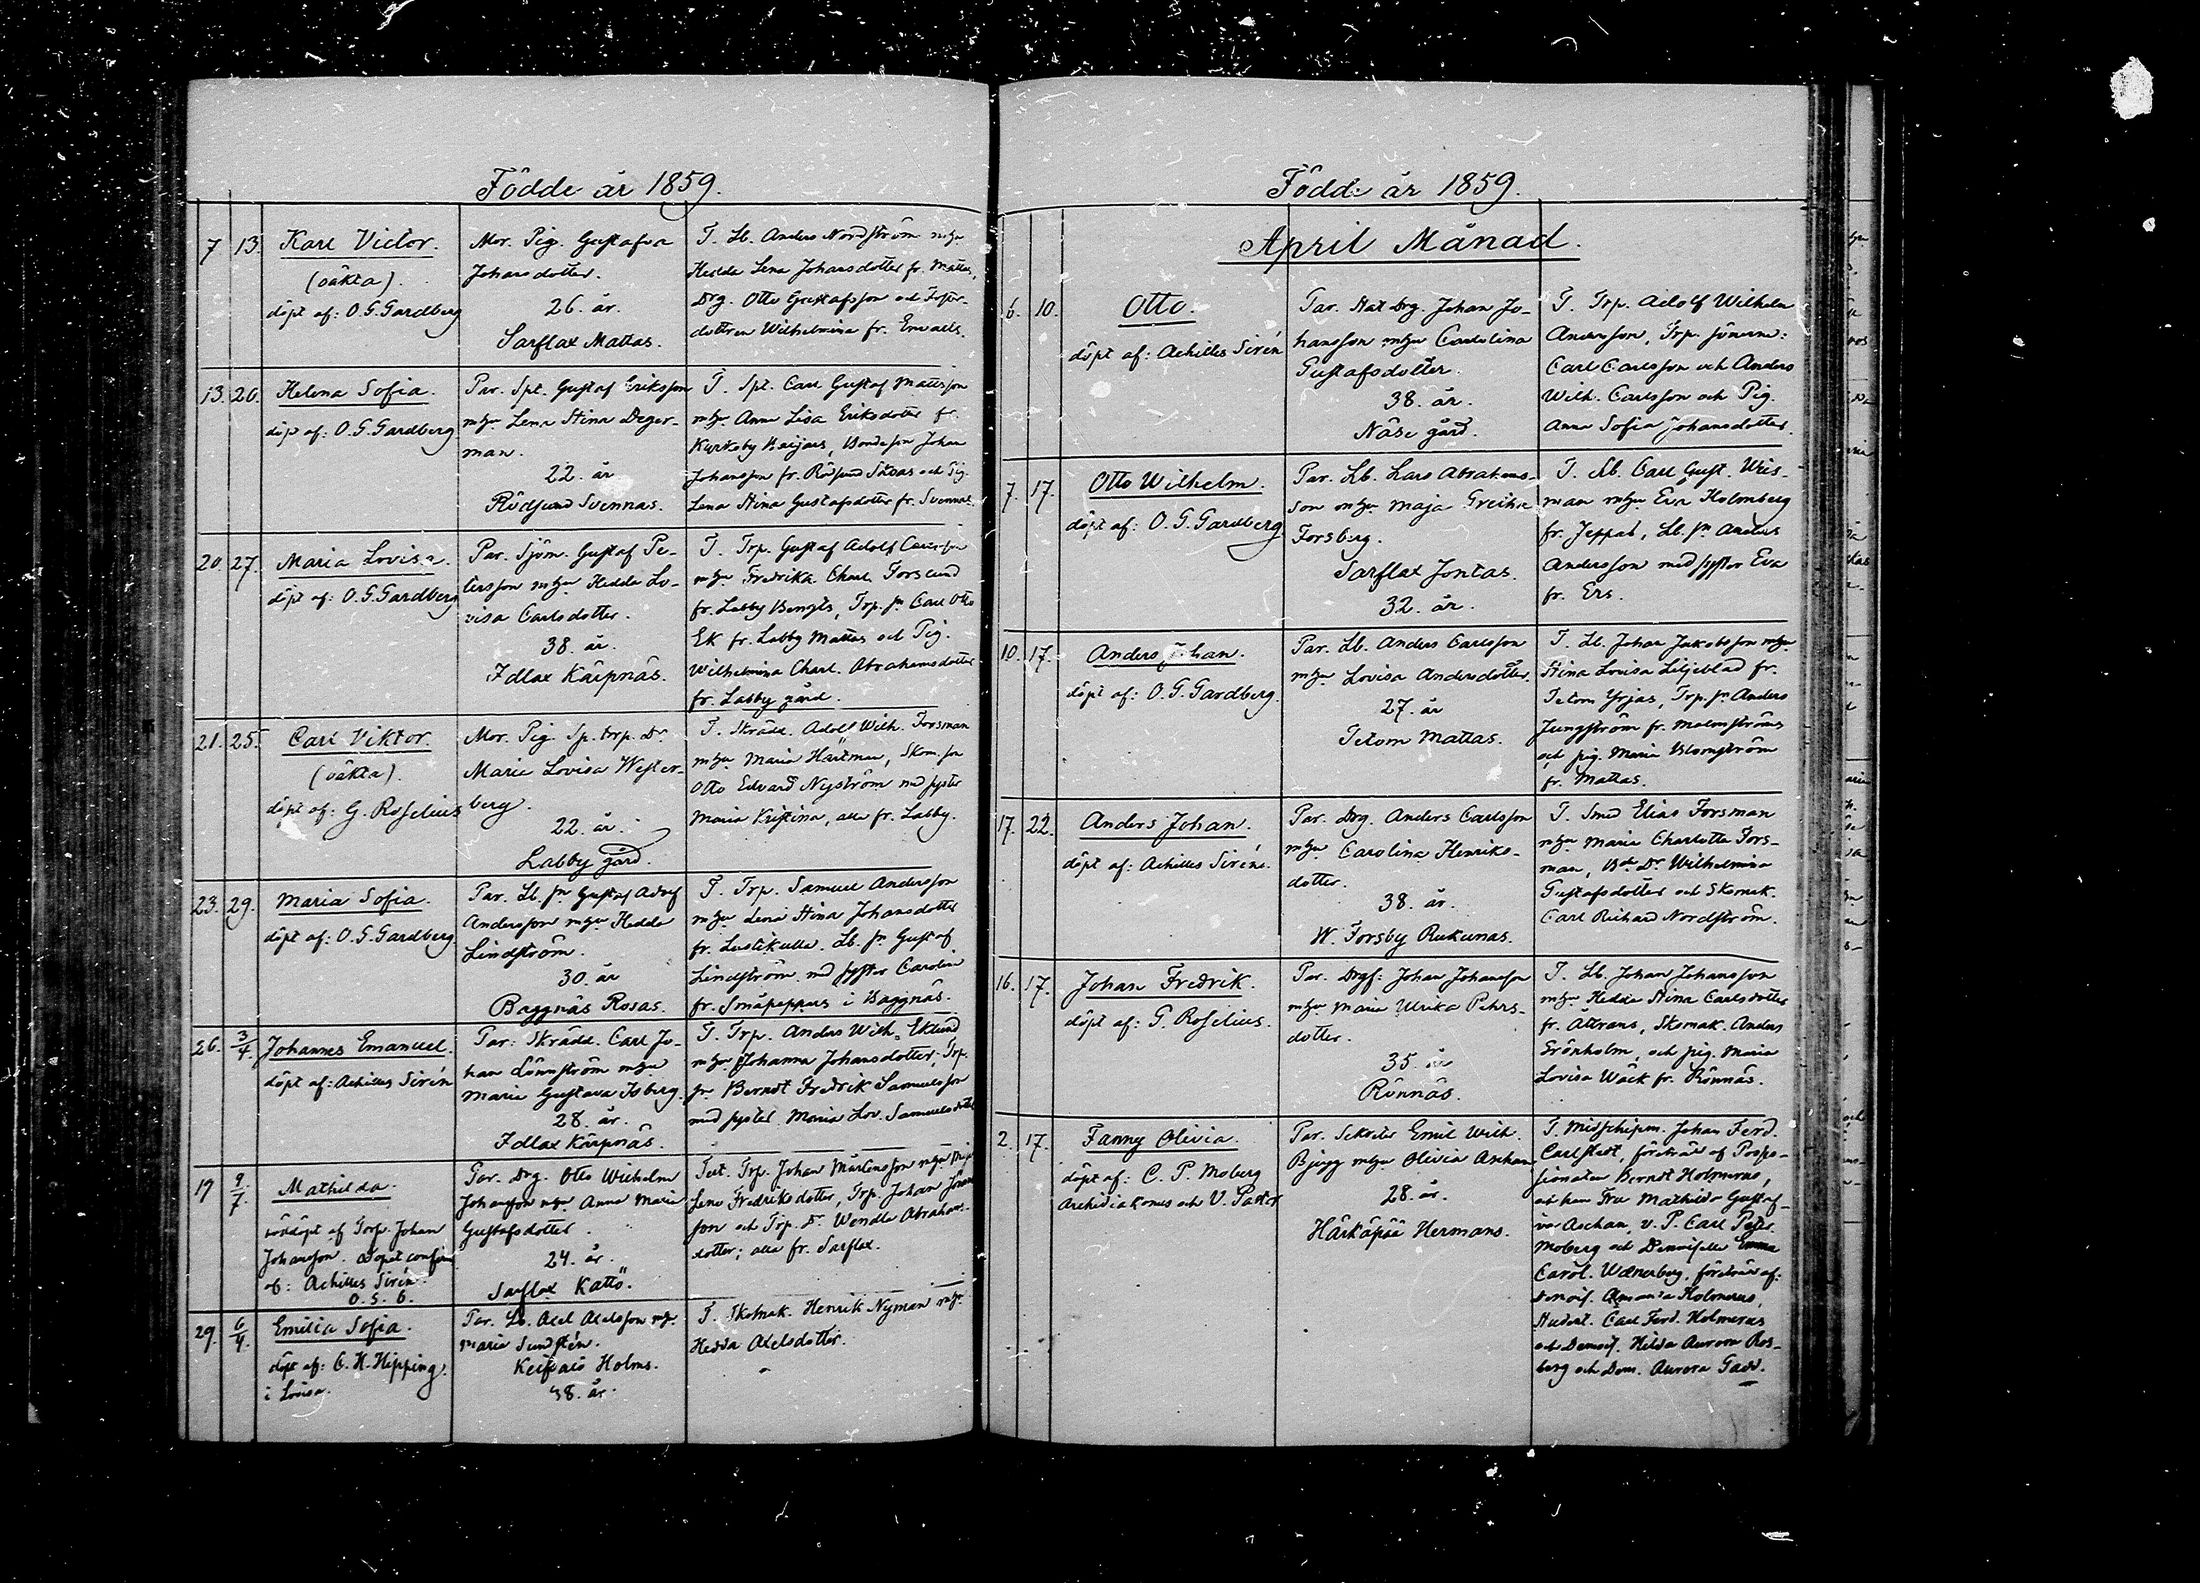 Födde år 1859.
7 13. Karl Victor.
(oäkta).
döpt af: O. G. Gardberg
Mor. Pig. Gustafva
Johansdotter.
26. år.
Sarflax Mattas.
T. Lb. Anders Nordström mhu
Hedda Lena Johansdotter fr. Mattas,
Drg. Otto Gustafsson och Foster-
dottren Wilhelmina fr. Envalls.
13. 20. Helena Sofia.
döpt af: O. G. Gardberg
Par. Spt. Gustaf Eriksson
mhu Lena Stina Deger-
man.
22. år
Rödsund Svennas.
T. Spt. Carl Gustaf Mattsson
mhu Anna Lisa Eriksdotter fr.
Kurkeby Beijars, Bondeson Johan
Johansson fr. Rösund och Pig.
Lena Stina Gustafsdotter fr. Svennas.
20. 27. Maria Lovisa.
döpt af: O. G. Gardberg
Par. Sjöm. Gustaf Pe-
tersson mhu Hedda Lo-
visa Carlsdotter.
38. år.
Idlax Kärpnäs.
T. Trp. Gustaf Adolf Carlsson
mhu Fredrika Charl. Forslund
fr. Labby Bengts, Trp. sn Carl Otto
Ek fr. Labby Mattas och Pig.
Wilhelmina Charl. Abrahamsdotter
fr. Labby gård.
21. 25. Carl Viktor.
(oäkta).
döpt af: G. Roselius
Mor. Pig. Sp. trp. Dr
Maria Lovisa Wester-
berg.
22. år.
Labby gård.
T. Skrädd. Adolf Wilh. Forsman
mhu Maria Hartman, Skom. son
Otto Edvard Nyström med syster
Maria Kristina, alla fr. Labby.
23. 29. Maria Sofia.
döpt af: O. G. Gardberg
Par. Lb. sn Gustaf Adolf
Andersson mhu Hedda
Lindström.
30. år
Baggnäs Rosas.
T. Trp. Samuel Andersson
mhu Lena Stina Johansdotter
fr. Lustikulla. Lb. sn Gustaf
Lindström med syster Carolin
fr. Småpeppars i Baggnäs.
26. 3/4. Johannes Emanuel.
döpt af: Achilles Sirén
Par: Skrädd. Carl Jo-
han Lönnström mhu
Maria Gustava Isberg.
28. år.
Idlax Kärpnäs.
T. Trp. Anders Wilh. Eklund
mhu Johanna Johansdotter, Trp.
sn Berndt Fredrik Samuelsson
med syster Maria Lov. Samuelsdotter
19 9/7. Mathilda.
nöddöpt af Torp. Johan
Johansson. Dopet confirm
af: Achilles Sirén.
O. S. G.
Par. Drg. Otto Wilhelm
Johansson mhu Anna Maria
Gustafsdotter.
24. år.
Sarflax Kattö.
Test. Trp. Johan Mårtensson mhu Maja
Lena Fredriksdotter, Trp. Johan Jöran
son och Trp. Dr Wendla Abrahams-
dotter; alla fr. Sarflax.
29. 6/4. Emilia Sofia.
döpt af: C. H. Hipping.
i Lovisa.
Par. Lb. Axel Axelsson mhu
Maria Sundstén.
Keitals Holms.
38. år.
T. Skomak. Henrik Nyman mhu
Hedda Axelsdotter.
Födde år 1859.
April Månad.
6. 10. Otto.
döpt af: Achilles Sirén
Par. Stat Drg. Johan Jo-
hansson mhu Carolina
Gustafsdotter.
38. år.
Näse gård.
T. Trp. Adolf Wilhelm
Andersson, Trp. sönerne:
Carl Carlsson och Anders
Wilh. Carlsson och Pig.
Anna Sofia Johansdotter.
7. 17. Otto Wilhelm.
döpt af: O. G. Gardberg
Par. Lb. Lars Abrahams-
son mhu Maja Greta
Forsberg.
Sarflax Jontas.
32. år.
T. Lb. Carl Gust. Weis-
man mhu Eva Holmberg
fr. Jeppas, Lb. sn Anders
Andersson med syster Eva
fr. Ers.
10. 17. Anders Johan.
döpt af: O. G. Gardberg.
Par. Lb. Anders Carlsson
mhu Lovisa Andersdotter.
27. år
Tetom Mattas.
T. Lb. Johan Jakobsson mhu
Stina Lovisa Liljeblad fr.
Tetom Yrjas, Trp. sn Anders
Jungström fr. Malmströms
och pig. Maria Blomström
fr. Mattas.
17. 22. Anders Johan.
döpt af: Achilles Sirén.
Par. Drg. Anders Carlsson
mhu Carolina Henriks-
dotter.
38. år.
W. Forsby Rukunas.
T. Smed Elias Forsman
mhu Maria Charlotta Fors-
man, Bde Dr Wilhelmina
Gustafsdotter och Skomak.
Carl Richard Nordström.
16. 17. Johan Fredrik.
döpt af: G. Roselius.
Par. Drgs: Johan Johansson
mhu Maria Ulrika Pehrs-
dotter.
35. år
Rönnäs.
T. Lb. Johan Johansson
mhu Hedda Stina Carlsdotter
fr. Åttrans, Skomak. Anders
Grönholm, och pig. Maria
Lovisa Wäck fr. Rönnäs.
2. 17. Fanny Olivia.
döpt af: C. P. Moberg
Archidiakonus och V. Pastor
Par. Sekreter Emil Wilh.
Bjugg mhu Olivia Aschan
28. år.
Härkäpää Hermans.
T. Midschipm. Johan Ferd.
Carlstedt, företrädd af Posses-
sionaten Berndt Holmerus,
och hans Fru Mathilda Gustaf-
va Aschan, v. P. Carl Peter
Moberg och Demoiselle Emma
Carol. Wænerberg, företrädd af:
Demois. Amanda Holmerus,
Student. Carl Ferd. Holmerus
och Demois. Hilda Aurora Ros-
berg och Dem. Aurora Gadd.